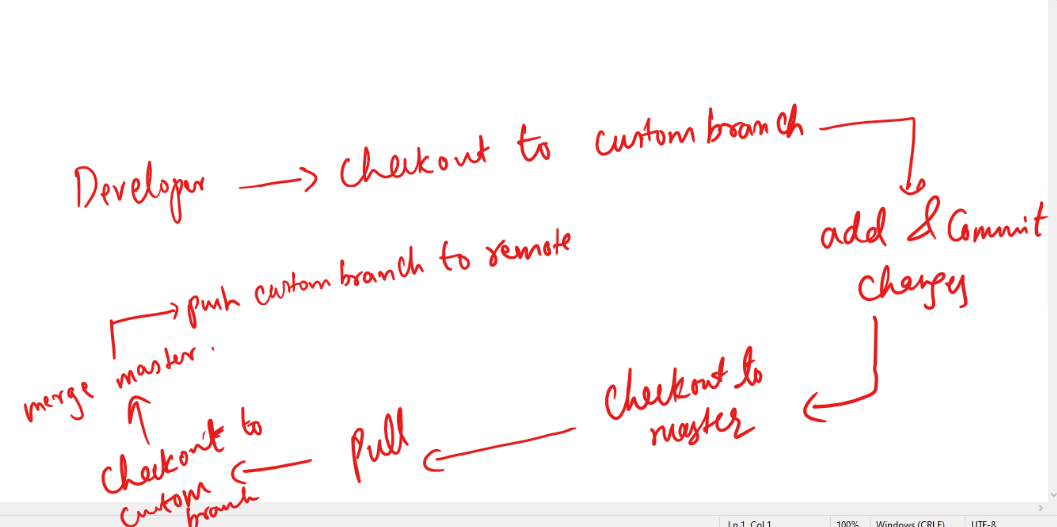 Developer → Checkout to custom branch
add & Commit
changes
Checkout to
master
Pull
Checkout to
custom
branch
merge master.
push custom branch to remote
Ln 1, Col 1 100% Windows (CRLF) UTF-8